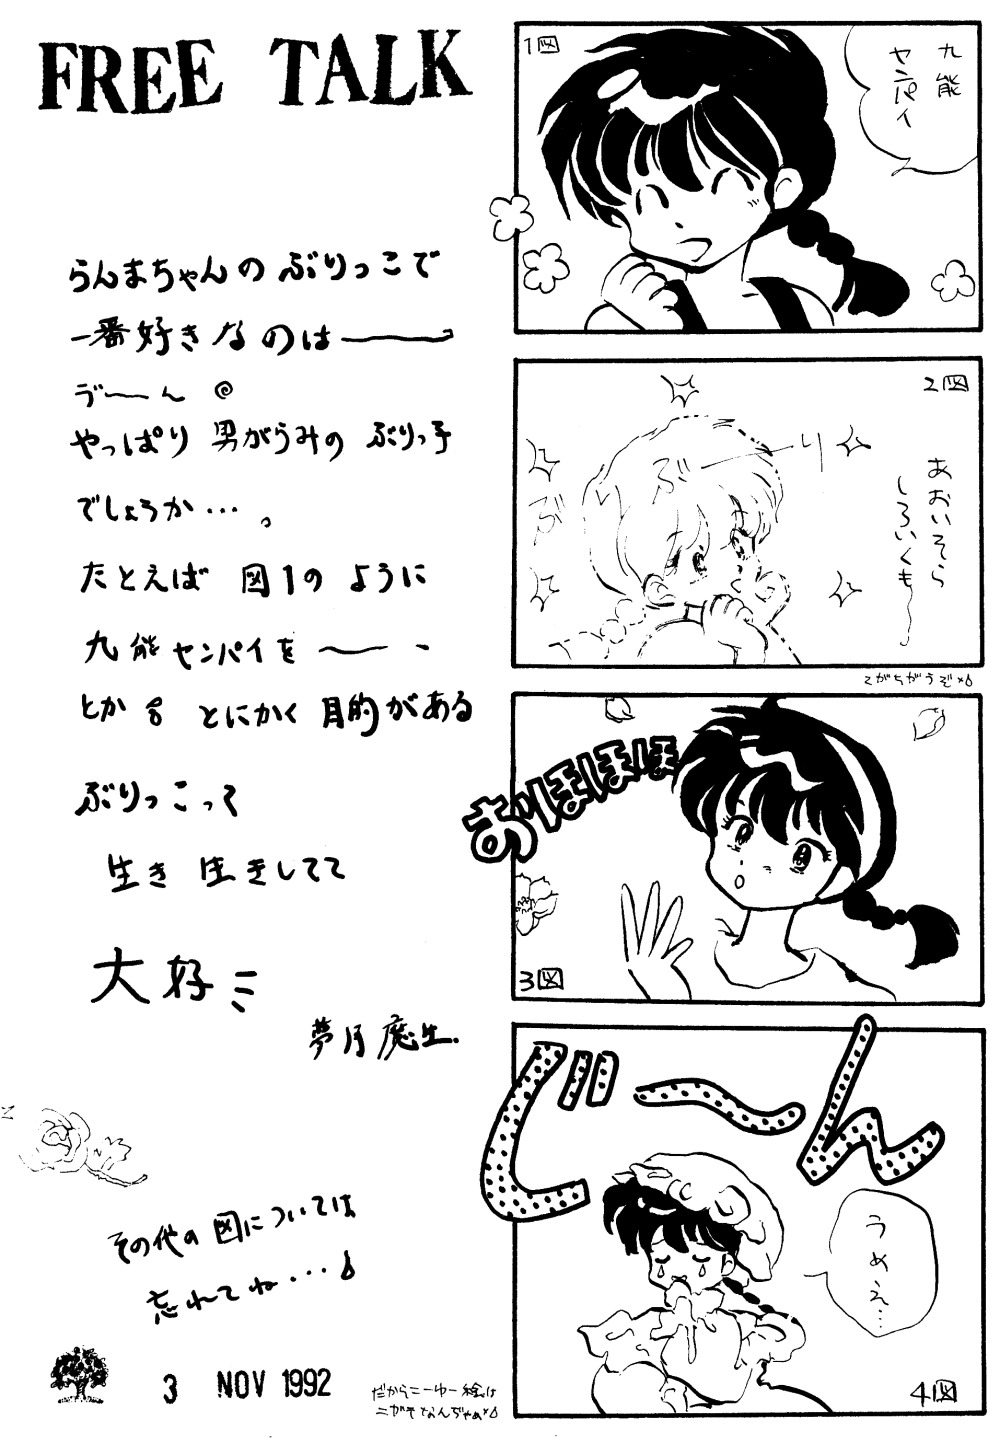 FREE TALK
らんまちゃんの ぶりっこで
一番好きなのは――っ
デ――ん
やっぱり 男がらみの ぶりっ子
でしょうか…。
たとえば 図1の ように
九能センパイを ―― -
とか とにかく 目的がある
ぶりっこって
生き生きしてて
大好
夢月 魔生.
その他の図については
忘れてね・・・
3 NOV 1992
だからこーゆー絵は
1図
九能
センパイ
2図
ぶ――り
ぶ
あおいそら
しろいくも〜
さがちがうぞ
おーほほほほ
3図
じ〜ん
うめえ…
4図